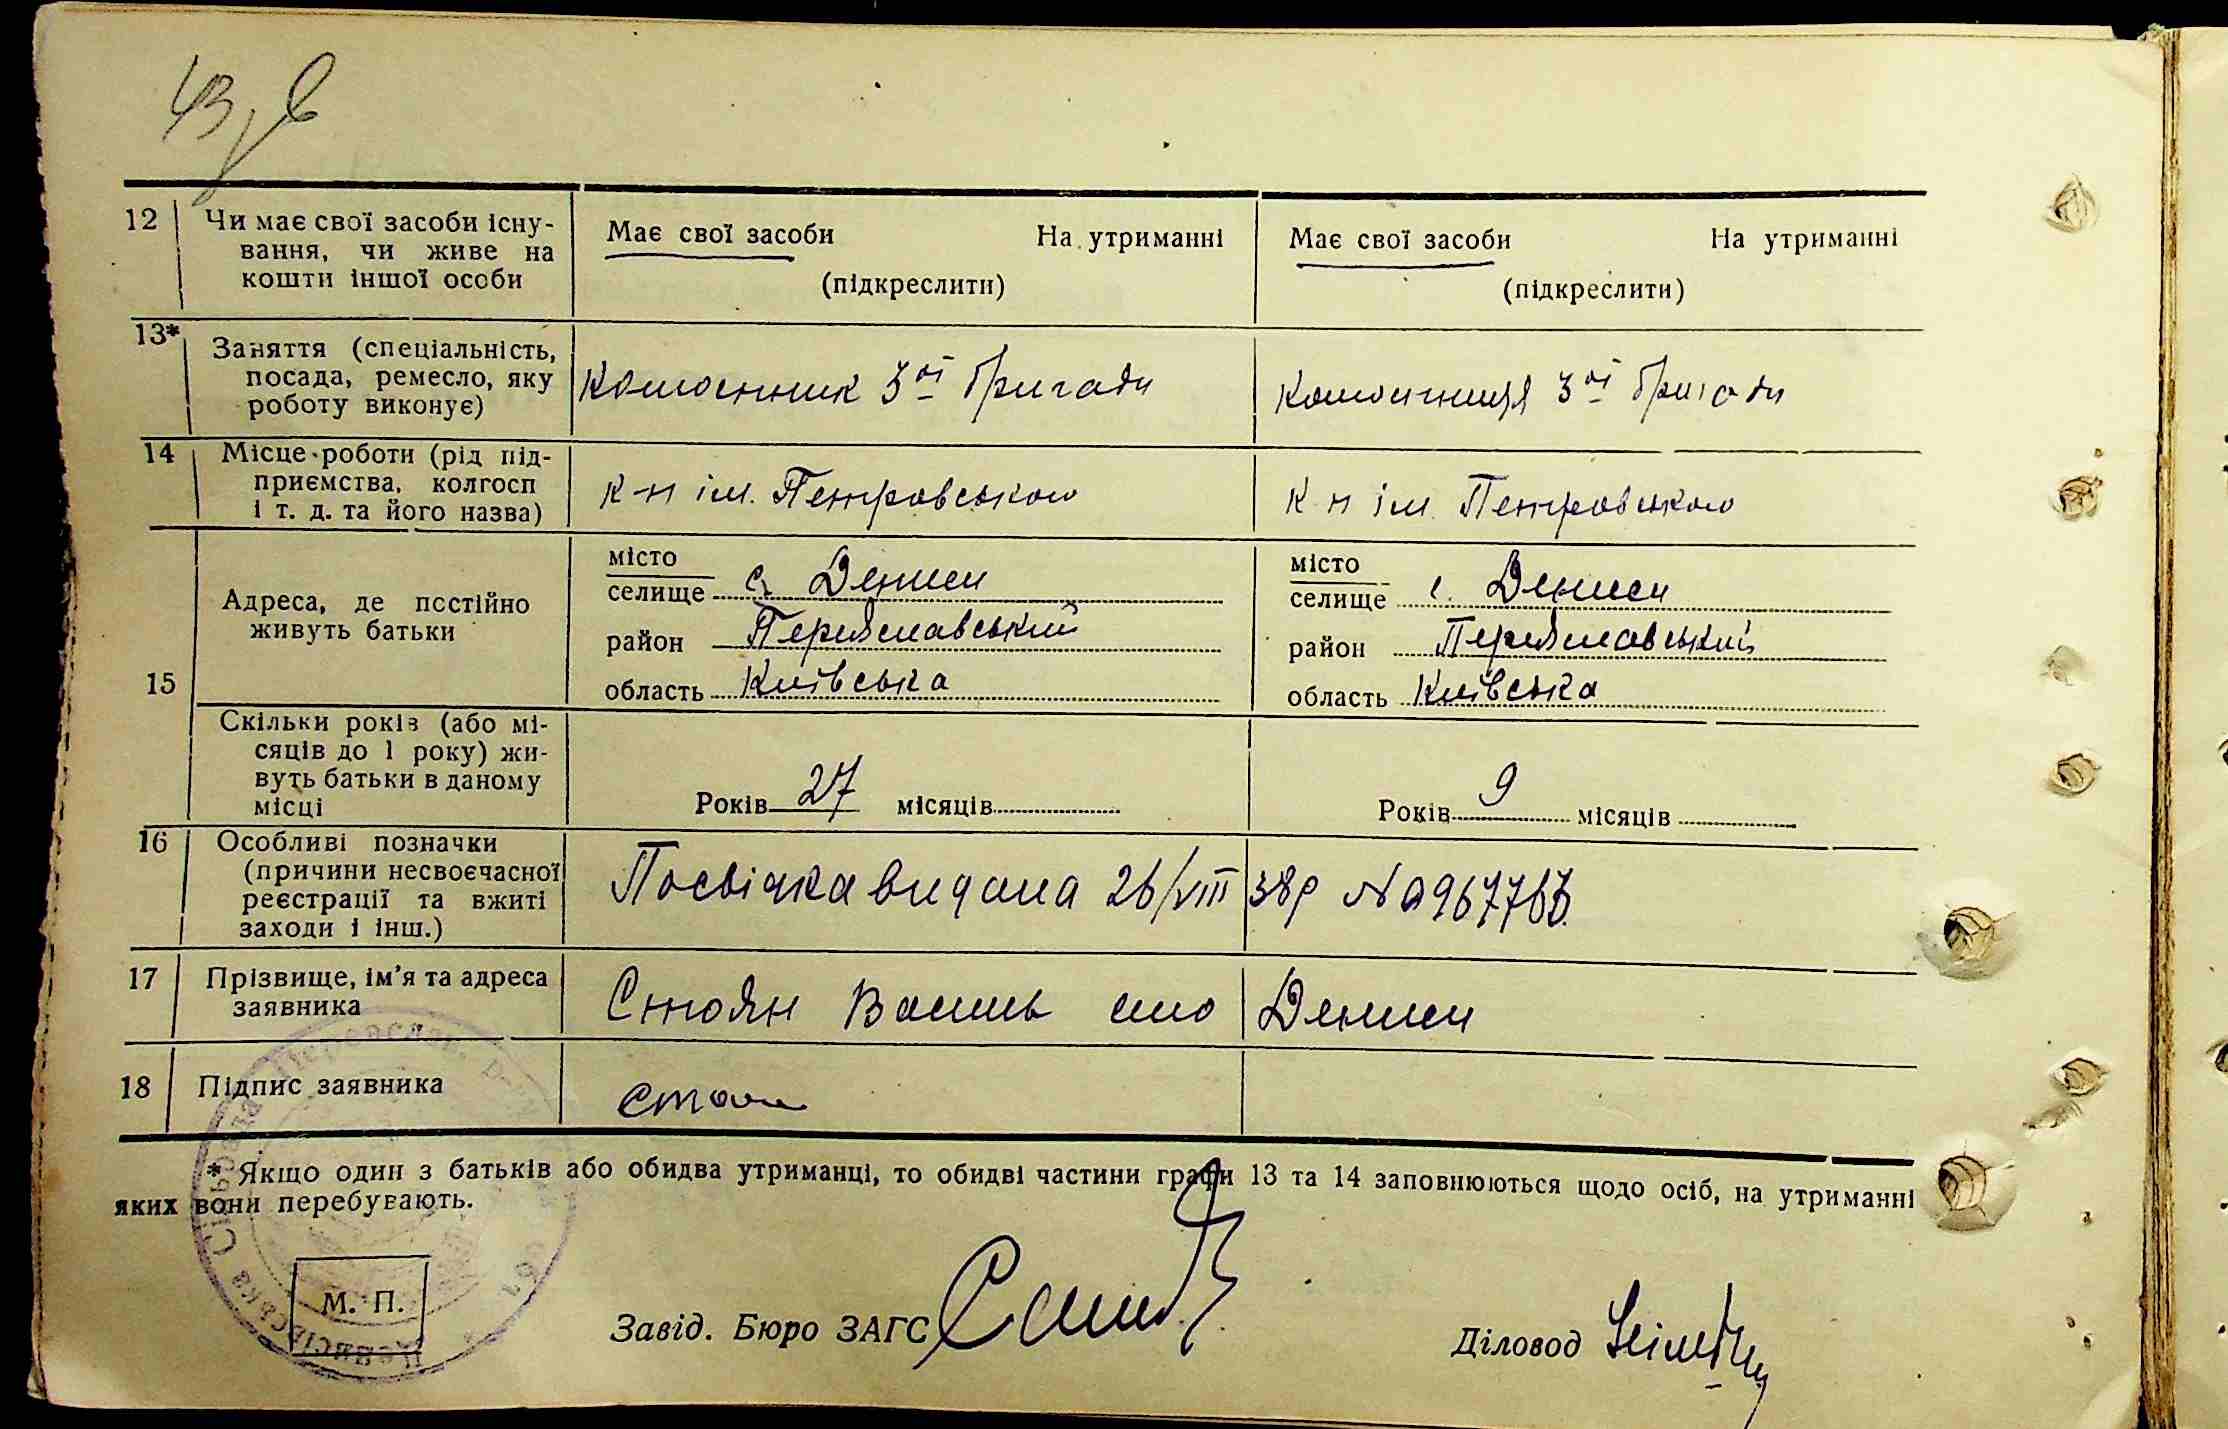 43
12 Чи має свої засоби існу-
вання, чи живе на
кошти іншої особи
Має свої засоби На утриманні
(підкреслити)
Має свої засоби На утриманні
(підкреслити)
13* Заняття (спеціальність,
посада, ремесло, яку
роботу виконує)
Колгоспник 3ої бригади
Колгоспниця 3ої бригади
14 Місце роботи (рід під-
приємства, колгосп
і т. д. та його назва)
к-п ім. Петровського
к-п ім. Петровського
15 Адреса, де постійно
живуть батьки
місто
селище с. Дениси
район Переяславський
область Київська
місто
селище с. Дениси
район Переяславський
область Київська
Скільки років (або мі-
сяців до 1 року) жи-
вуть батьки в даному
місці
Років 27 місяців
Років 9 місяців
16 Особливі позначки
(причини несвоєчасної
реєстрації та вжиті
заходи і інш.)
Посвічка видана 26/VIII 38р №
17 Прізвище, ім'я та адреса
заявника
Стоян Василь село Дениси
18 Підпис заявника
Стоян
* Якщо один з батьків або обидва утриманці, то обидві частини графи 13 та 14 заповнюються щодо осіб, на утриманні
яких вони перебувають.
М. П.
Завід. Бюро ЗАГС
Діловод